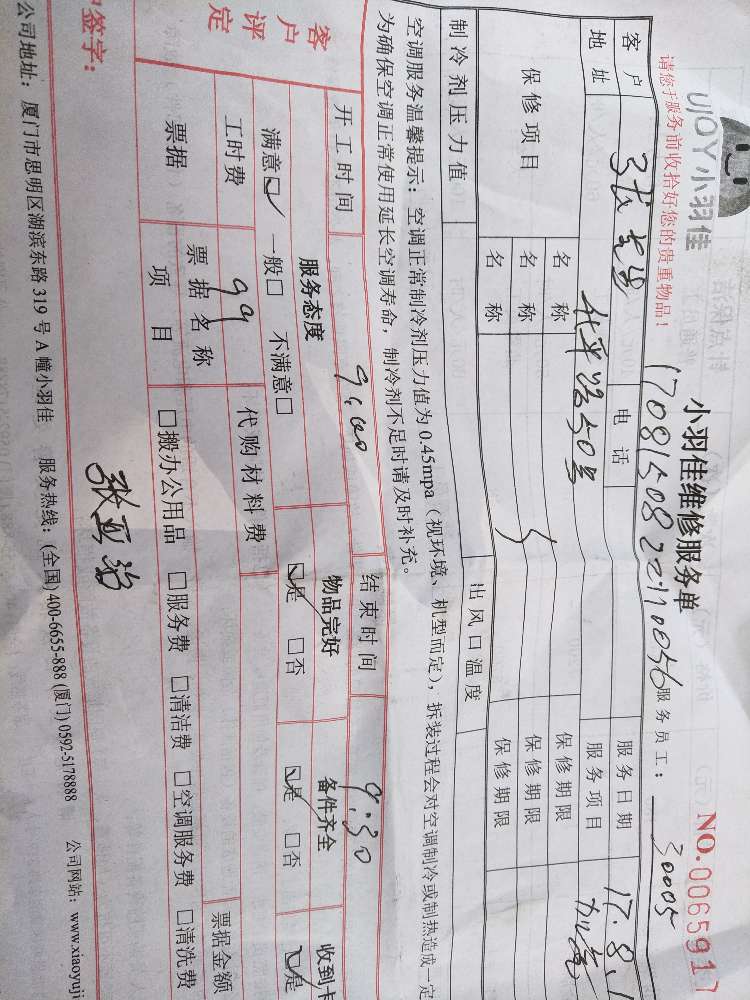 UJOY小羽佳
小羽佳维修服务单
NO.0065917
请您于服务前收拾好您的贵重物品!
服务员工: 30005
客户 电话 服务日期 17.8.1
地址 服务项目 加氟
保修项目 名称 保修期限
名称 保修期限
名称 保修期限
制冷剂压力值 出风口温度
空调服务温馨提示:空调正常制冷剂压力值为0.45mpa(视环境、机型而定),拆装过程会对空调制冷或制热造成一定
为确保空调正常使用延长空调寿命,制冷剂不足时请及时补充。
开工时间 9:00 结束时间 9:30
客户评定
服务态度 物品完好 备件齐全 收到卡
满意☑ 一般□ 不满意□ ☑是 □否 ☑是 □否 ☑是
工时费 99 代购材料费
票据 票据名称 票据金额
项目 □搬办公用品 □服务费 □清洁费 □空调服务费 □清洗费
签字:
公司地址:厦门市思明区湖滨东路319号A幢小羽佳 服务热线:(全国)400-6655-888 (厦门)0592-5178888 公司网站:www.xiaoyuji